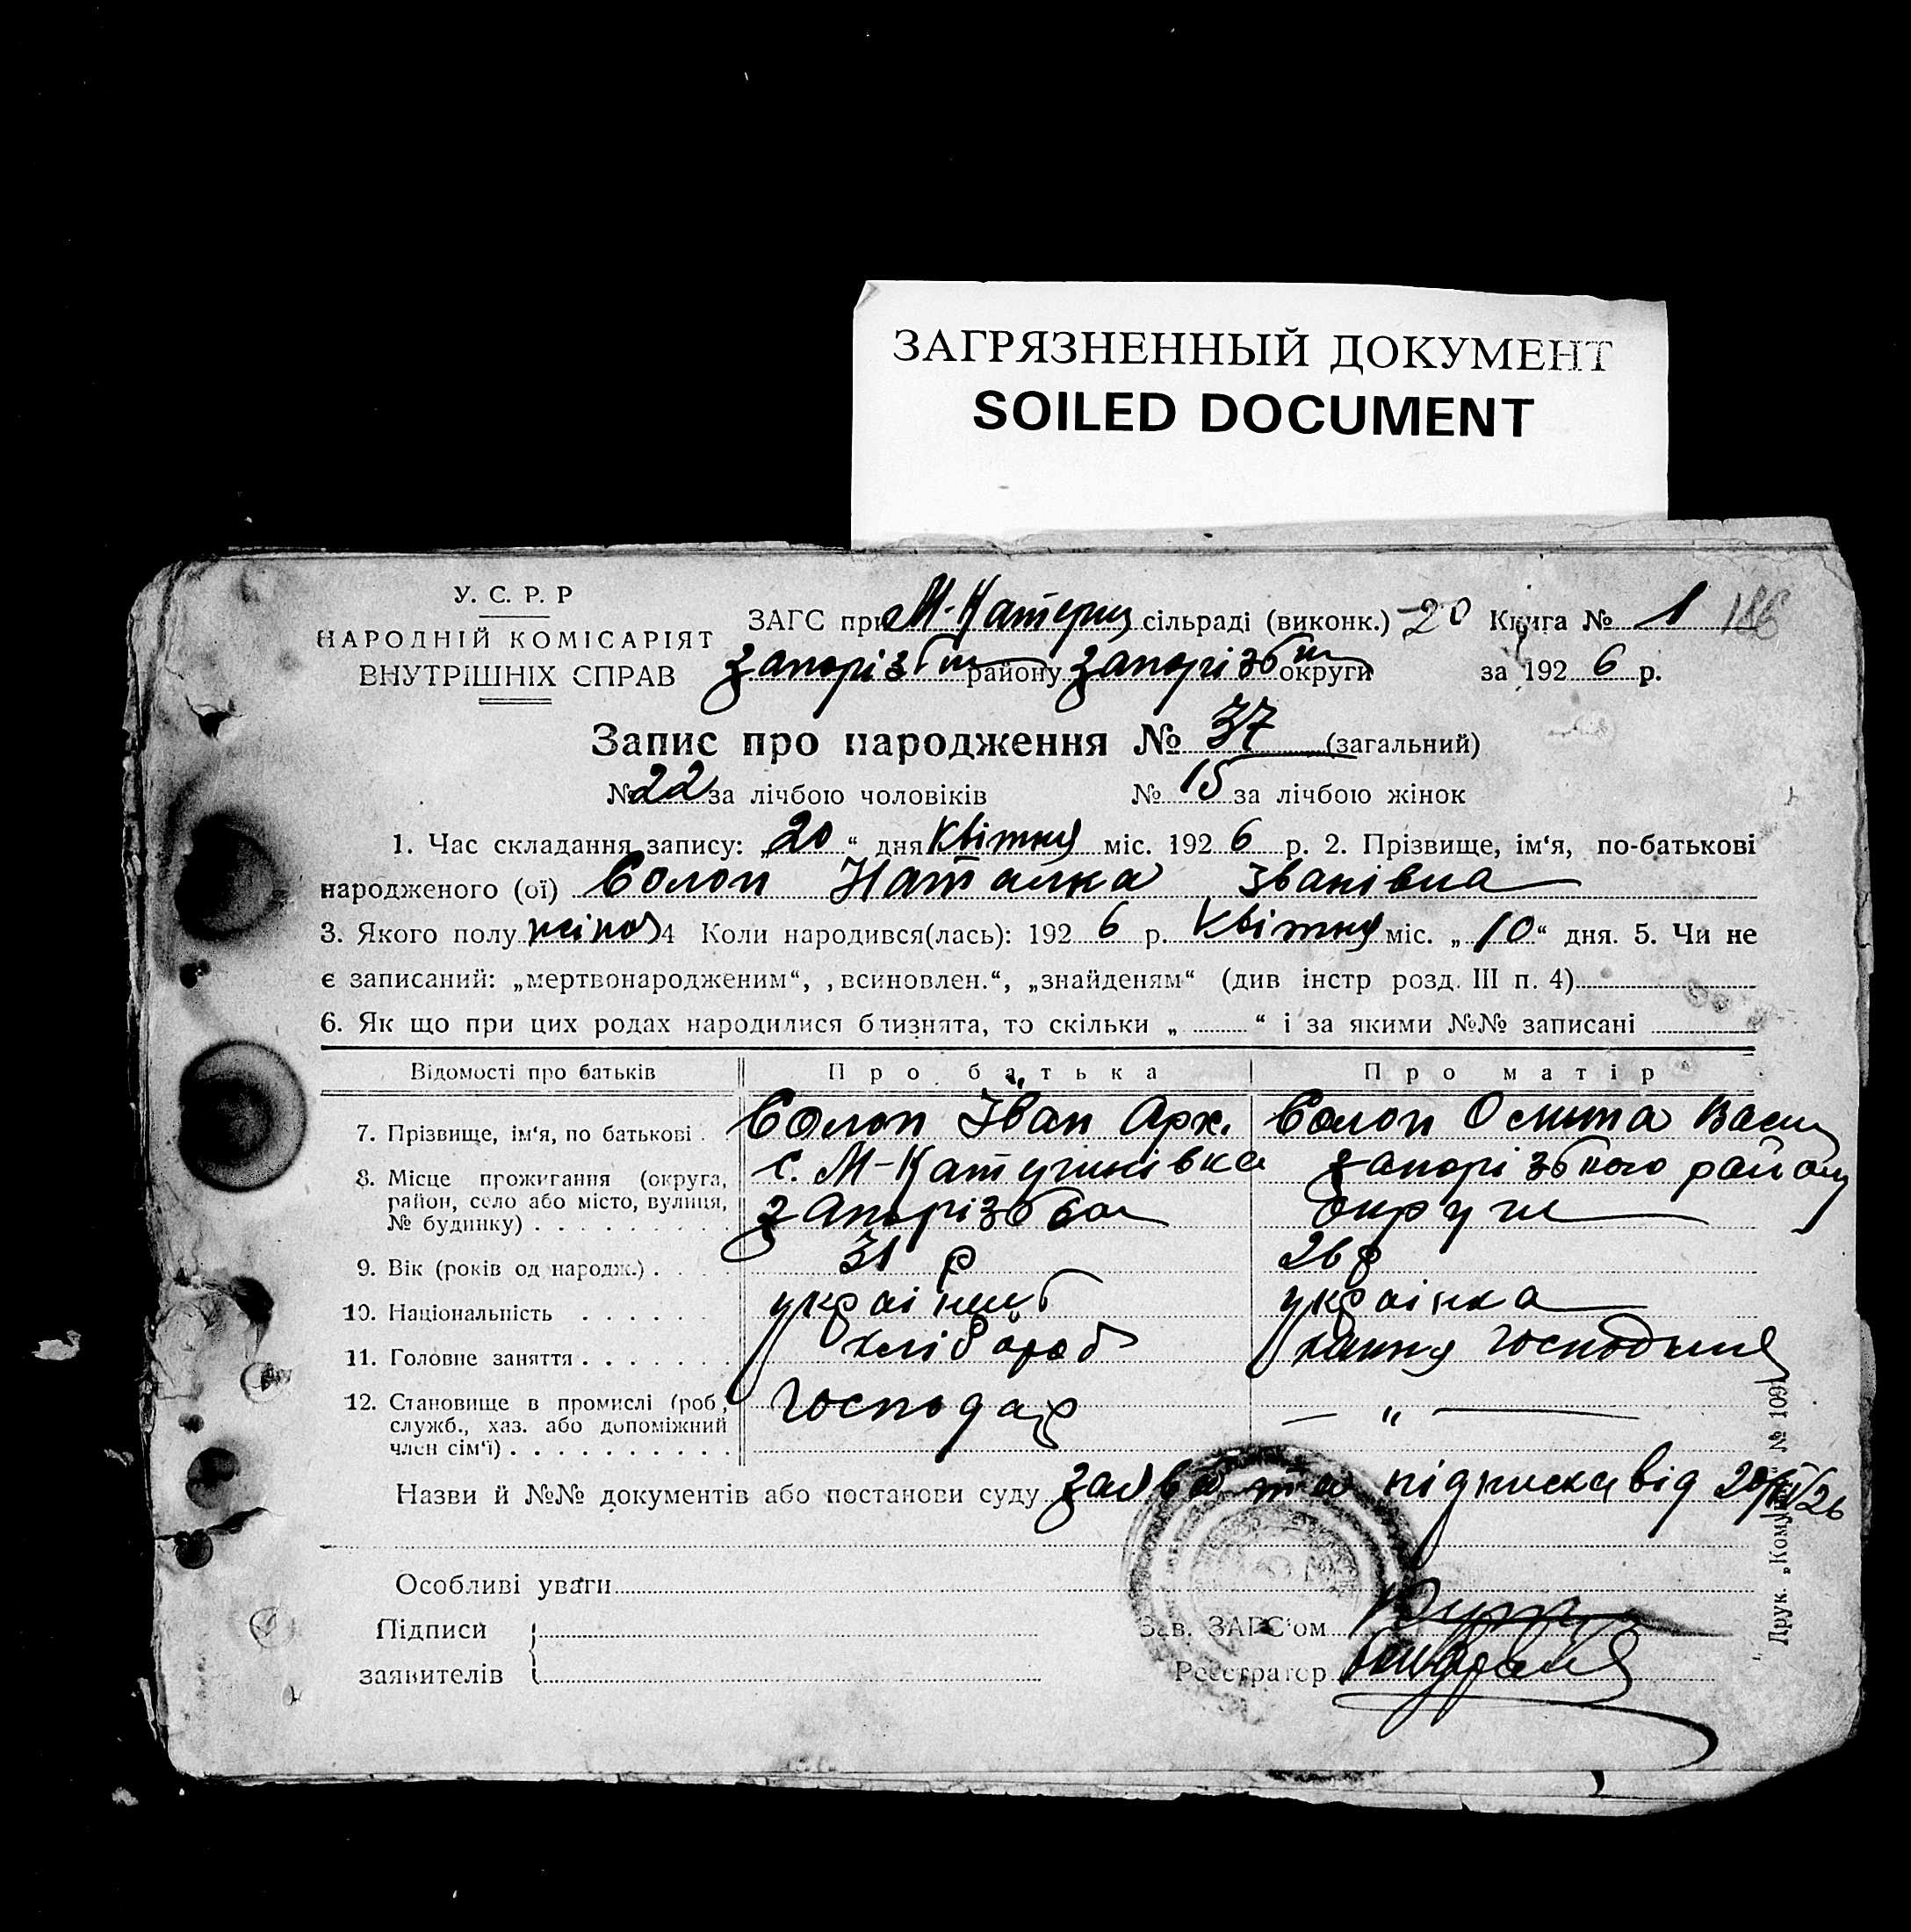 ЗАГРЯЗНЕННЫЙ ДОКУМЕНТ
SOILED DOCUMENT
У. С. Р. Р
НАРОДНІЙ КОМІСАРІЯТ
ВНУТРІШНІХ СПРАВ
ЗАГС при М-Катерин сільраді (виконк.) 20 Книга № 1 186
району округи за 1926 р.
Запис про народження № 37 (загальний)
№ 22 за лічбою чоловіків № 15 за лічбою жінок
1. Час складання запису: „20“ дня Квітня міс. 1926 р. 2. Прізвище, ім‘я, по-батькові
народженого (ої) Солоп Наталка Званівна
3. Якого полу жіноч 4 Коли народився(лась): 1926 р. Квітня міс. „10“ дня. 5. Чи не
є записаний: „мертвонародженим“, „всиновлен.“, „знайденям“ (див інстр розд. III п. 4)
6. Як що при цих родах народилися близнята, то скільки „ “ і за якими №№ записані
Відомості про батьків Про батька Про матір
7. Прізвище, ім‘я, по батькові . Солоп Іван Арх. Солоп Васи
8. Місце проживання (округа, район, село або місто, вулиця, № будинку) с. М-Катеринівка Запорізького району
округи
9. Вік (років од народж.) 31 р 26 р
10. Національність українец українка
11. Головне заняття хлібороб хатня господиня
12. Становище в промислі (роб., служб., хаз. або допоміжний член сім‘ї) господар — " —
Назви й №№ документів або постанови суду заява та підписка від 20/IV/26
Особливі уваги
Підписи
заявителів
Зав. ЗАГС‘ом
Реєстратор
Друк. „Кому № 109